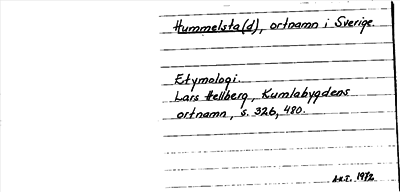 Hummelsta(d), ortnamn i Sverige
Etymologi.
Lars Hellberg, Kumlabygdens
ortnamn, s. 326, 480.
1972